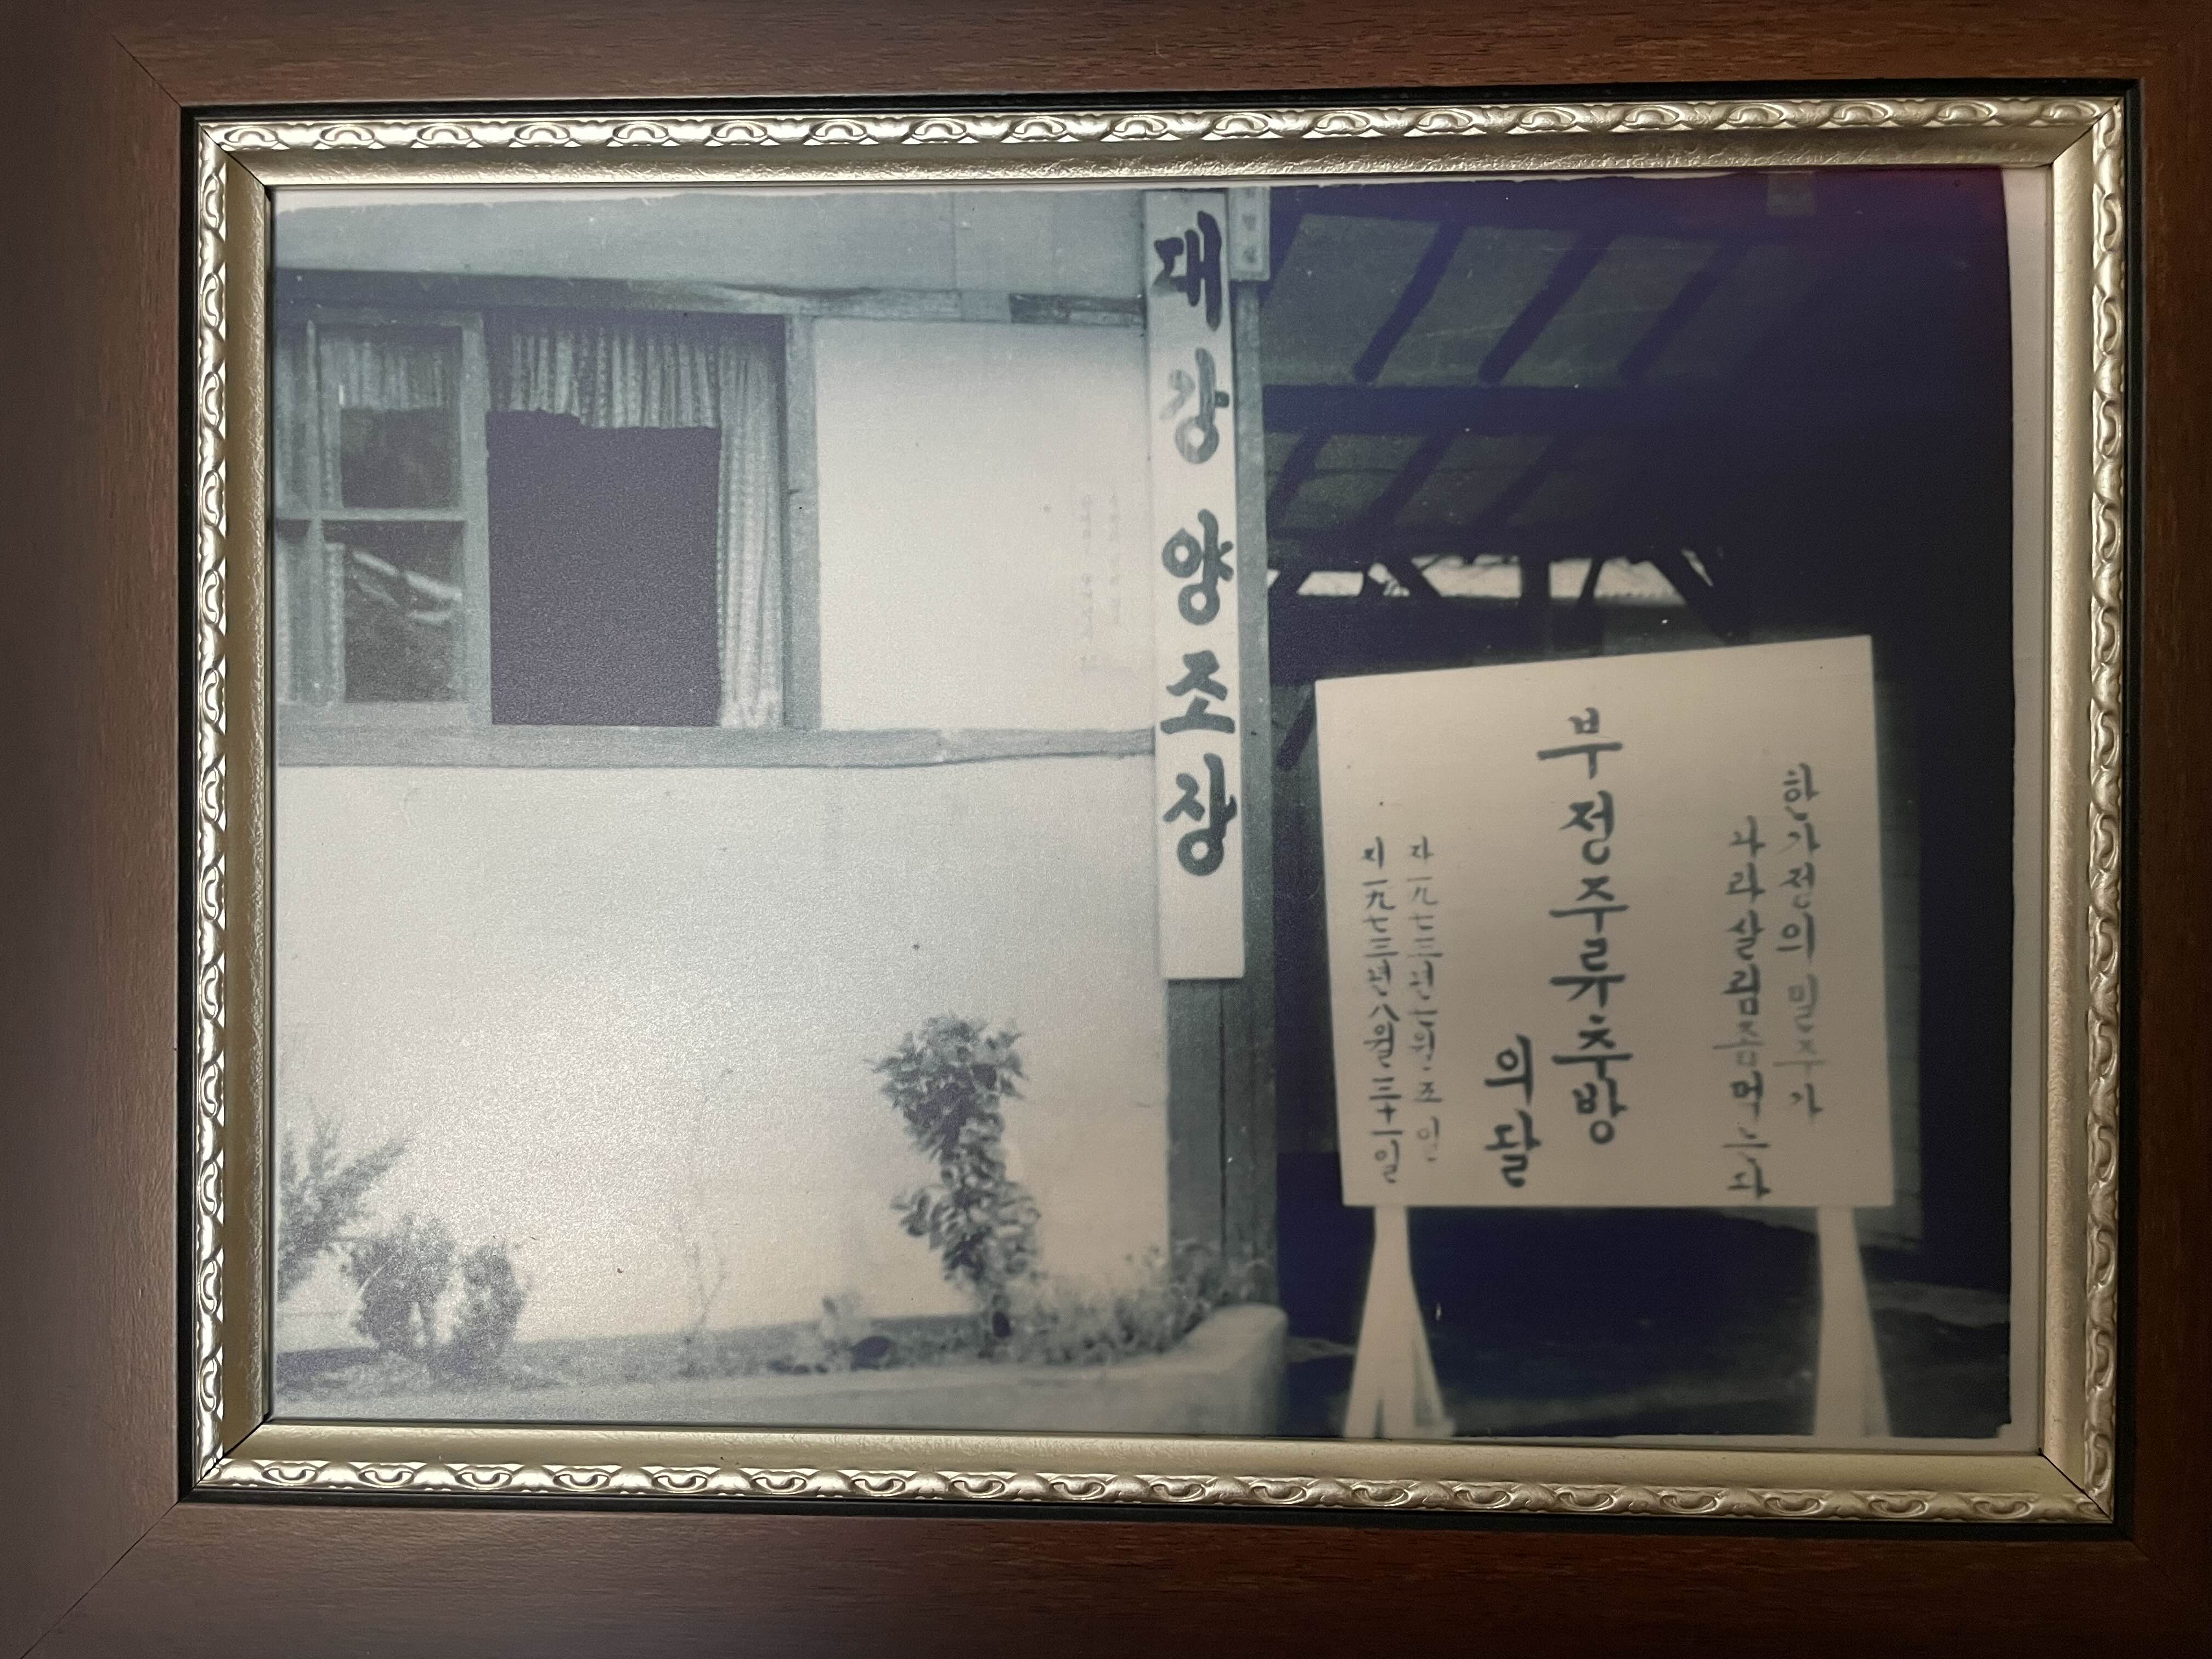 대강양조장
한 가정의 밀주가
나라살림 좀먹는다
부정주류추방
의 달
자 一九七三년 七월 조 일
지 一九七三년 八월 三十一일